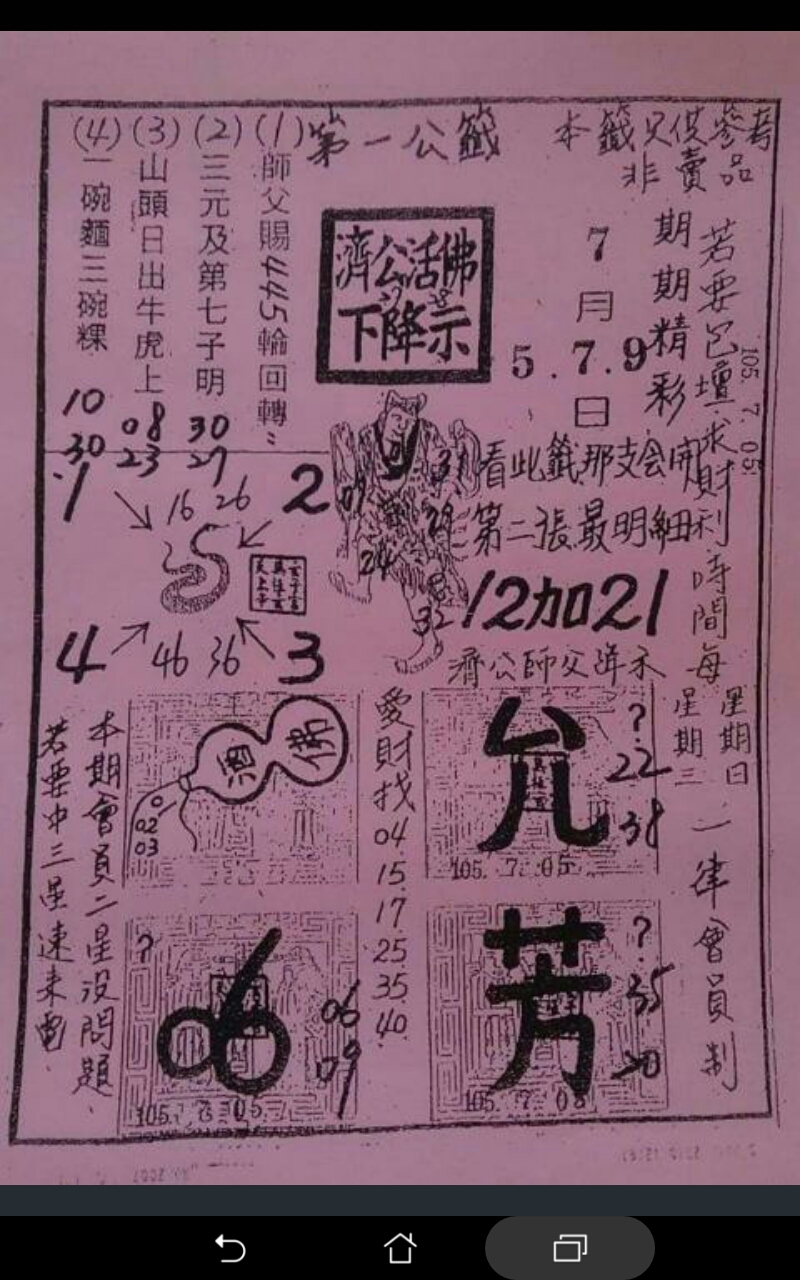 第一公籤
本籤只供參考
非賣品
(1)師父賜445輪回轉
(2)三元及第七子明
30
27
(3)山頭日出牛虎上
08
23
(4)一碗麵三碗粿
10
30
濟公活佛
下降示
7
月
5.7.9
日
期期精彩
若要包壇求財利時間每
星期日
星期三
一律會員制
105.7.05
看此籤那支会開
第二張最明細
12加21
濟公師父降示
1
2
16 26
4
46 36
3
01
09
31
29
24
32
本期會員二星沒問題
若要中三星速來電
佛
酒
02
03
愛財找
04
15
17
25
35
40
允
?
22
38
105.7.05
?
06
06
09
105.7.05
芳
?
35
20
105.7.05